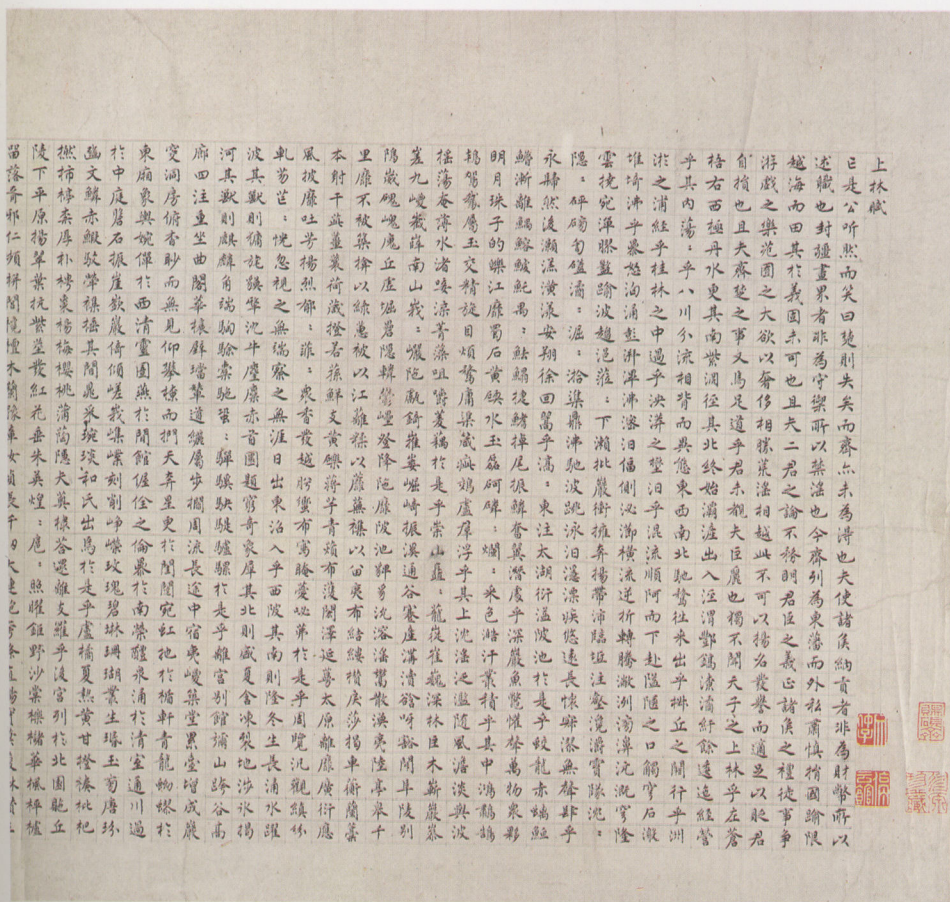 上林賦
亡是公听然而笑曰楚則失矣而齊亦未為得也夫使諸侯納貢者非為財幣所以
述職也封疆畫界者非為守禦所以禁淫也今齊列為東藩而外私肅慎捐國踰限
越海而田其於義固未可也且夫二君之論不務明君臣之義正諸侯之禮徒事爭
游戲之樂苑囿之大欲以奢侈相勝荒淫相越此不可以揚名發譽而適足以貶君
自損也且夫齊楚之事又烏足道乎君未覩夫巨麗也獨不聞天子之上林乎左蒼
梧右西極丹水更其南紫淵徑其北終始灞滻出入涇渭酆鎬潦潏紆餘逶迤經營
乎其內蕩〻乎八川分流相背而異態東西南北馳騖往來出乎椒丘之闕行乎洲
淤之浦經乎桂林之中過乎泱漭之壄汩乎混流順阿而下赴隘陿之口觸穹石激
堆埼沸乎暴怒洶涌彭湃滭沸宓汩偪側泌瀄橫流逆折轉騰潎洌滂濞沆溉穹隆
雲橈宛潬膠盭踰波趨浥蒞〻下瀨批巖衝擁奔揚滯沛臨坻注壑瀺灂霣隊沈〻
隱〻砰磅訇礚潏〻淈〻湁潗鼎沸馳波跳沫汩濦漂疾悠遠長懷寂漻無聲肆乎
永歸然後灝溔潢漾安翔徐回翯乎滈〻東注太湖衍溢陂池於是乎蛟龍赤螭䱎
䲛漸離鰅鰫鰬魠禺〻魼鰨揵鰭掉尾振鱗奮翼潛處乎深巖魚鱉讙聲萬物衆夥
明月珠子的皪江靡蜀石黃碝水玉磊砢磷〻爛〻采色澔汗藂積乎其中鴻鷫鵠
鴇駕鵞屬玉交精旋目煩鶩庸渠葴疵鵁盧羣浮乎其上沈淫泛濫隨風澹淡與波
搖蕩奄薄水渚唼喋菁藻咀嚼菱藕於是乎崇山矗〻龍嵸崔巍深林巨木嶄巖參
嵳九嵕嶻嶭南山峩〻巖陁甗錡摧崣崛崎振溪通谷蹇產溝瀆谽呀豁閜阜陵別
隝崴磈㟪廆丘虛堀礨隱轔鬱㠥登降陁靡陂池貏豸沇溶淫鬻散渙夷陸亭皋千
里靡不被築揜以綠蕙被以江離糅以蘼蕪襍以留夷布結縷攢戾莎揭車衡蘭藁
本射干茈薑蘘荷葴橙若蓀鮮支黃礫蔣芧青薠布濩閎澤延蔓太原離靡廣衍應
風披靡吐芳揚烈郁〻菲〻衆香發越肸蠁布寫晻薆咇茀於是乎周覽汎觀縝紛
軋芴芒〻怳忽視之無端察之無涯日出東沼入乎西陂其南則隆冬生長涌水躍
波其獸則㺎旄貘犛沈牛麈麋赤首圜題窮奇象犀其北則盛夏含凍裂地涉冰揭
河其獸則麒麟角端騊駼橐駞蛩〻驒騱駃騠驢騾於是乎離宮別館彌山跨谷高
廊四注重坐曲閣華榱璧璫輦道纚屬步櫩周流長途中宿夷嵕築堂累臺增成巖
窔洞房俯杳眇而無見仰攀橑而捫天奔星更於閨闥宛虹拖於楯軒青龍蚴蟉於
東廂象輿婉僤於西清靈圉燕於閒館偓佺之倫暴於南榮醴泉涌於清室通川過
於中庭磐石振崖嶔巖倚傾嵯峨㠎嶫刻削崢嶸玫瑰碧琳珊瑚叢生瑉玉旁唐玢
豳文鱗赤瑕駁犖襍臿其間晁采琬琰和氏出焉於是乎盧橘夏熟黃甘橙楱枇杷
橪柿楟柰厚朴梬棗楊梅櫻桃蒲萄隱夫薁棣荅遝離支羅乎後宮列於北園貤丘
陵下平原揚翠葉杌紫莖發紅花垂朱榮煌〻扈〻照曜鉅野沙棠櫟櫧華楓枰櫨
留落胥邪仁頻栟閭欃檀木蘭豫章女貞長千仞大連抱夸條直暢實葉葰